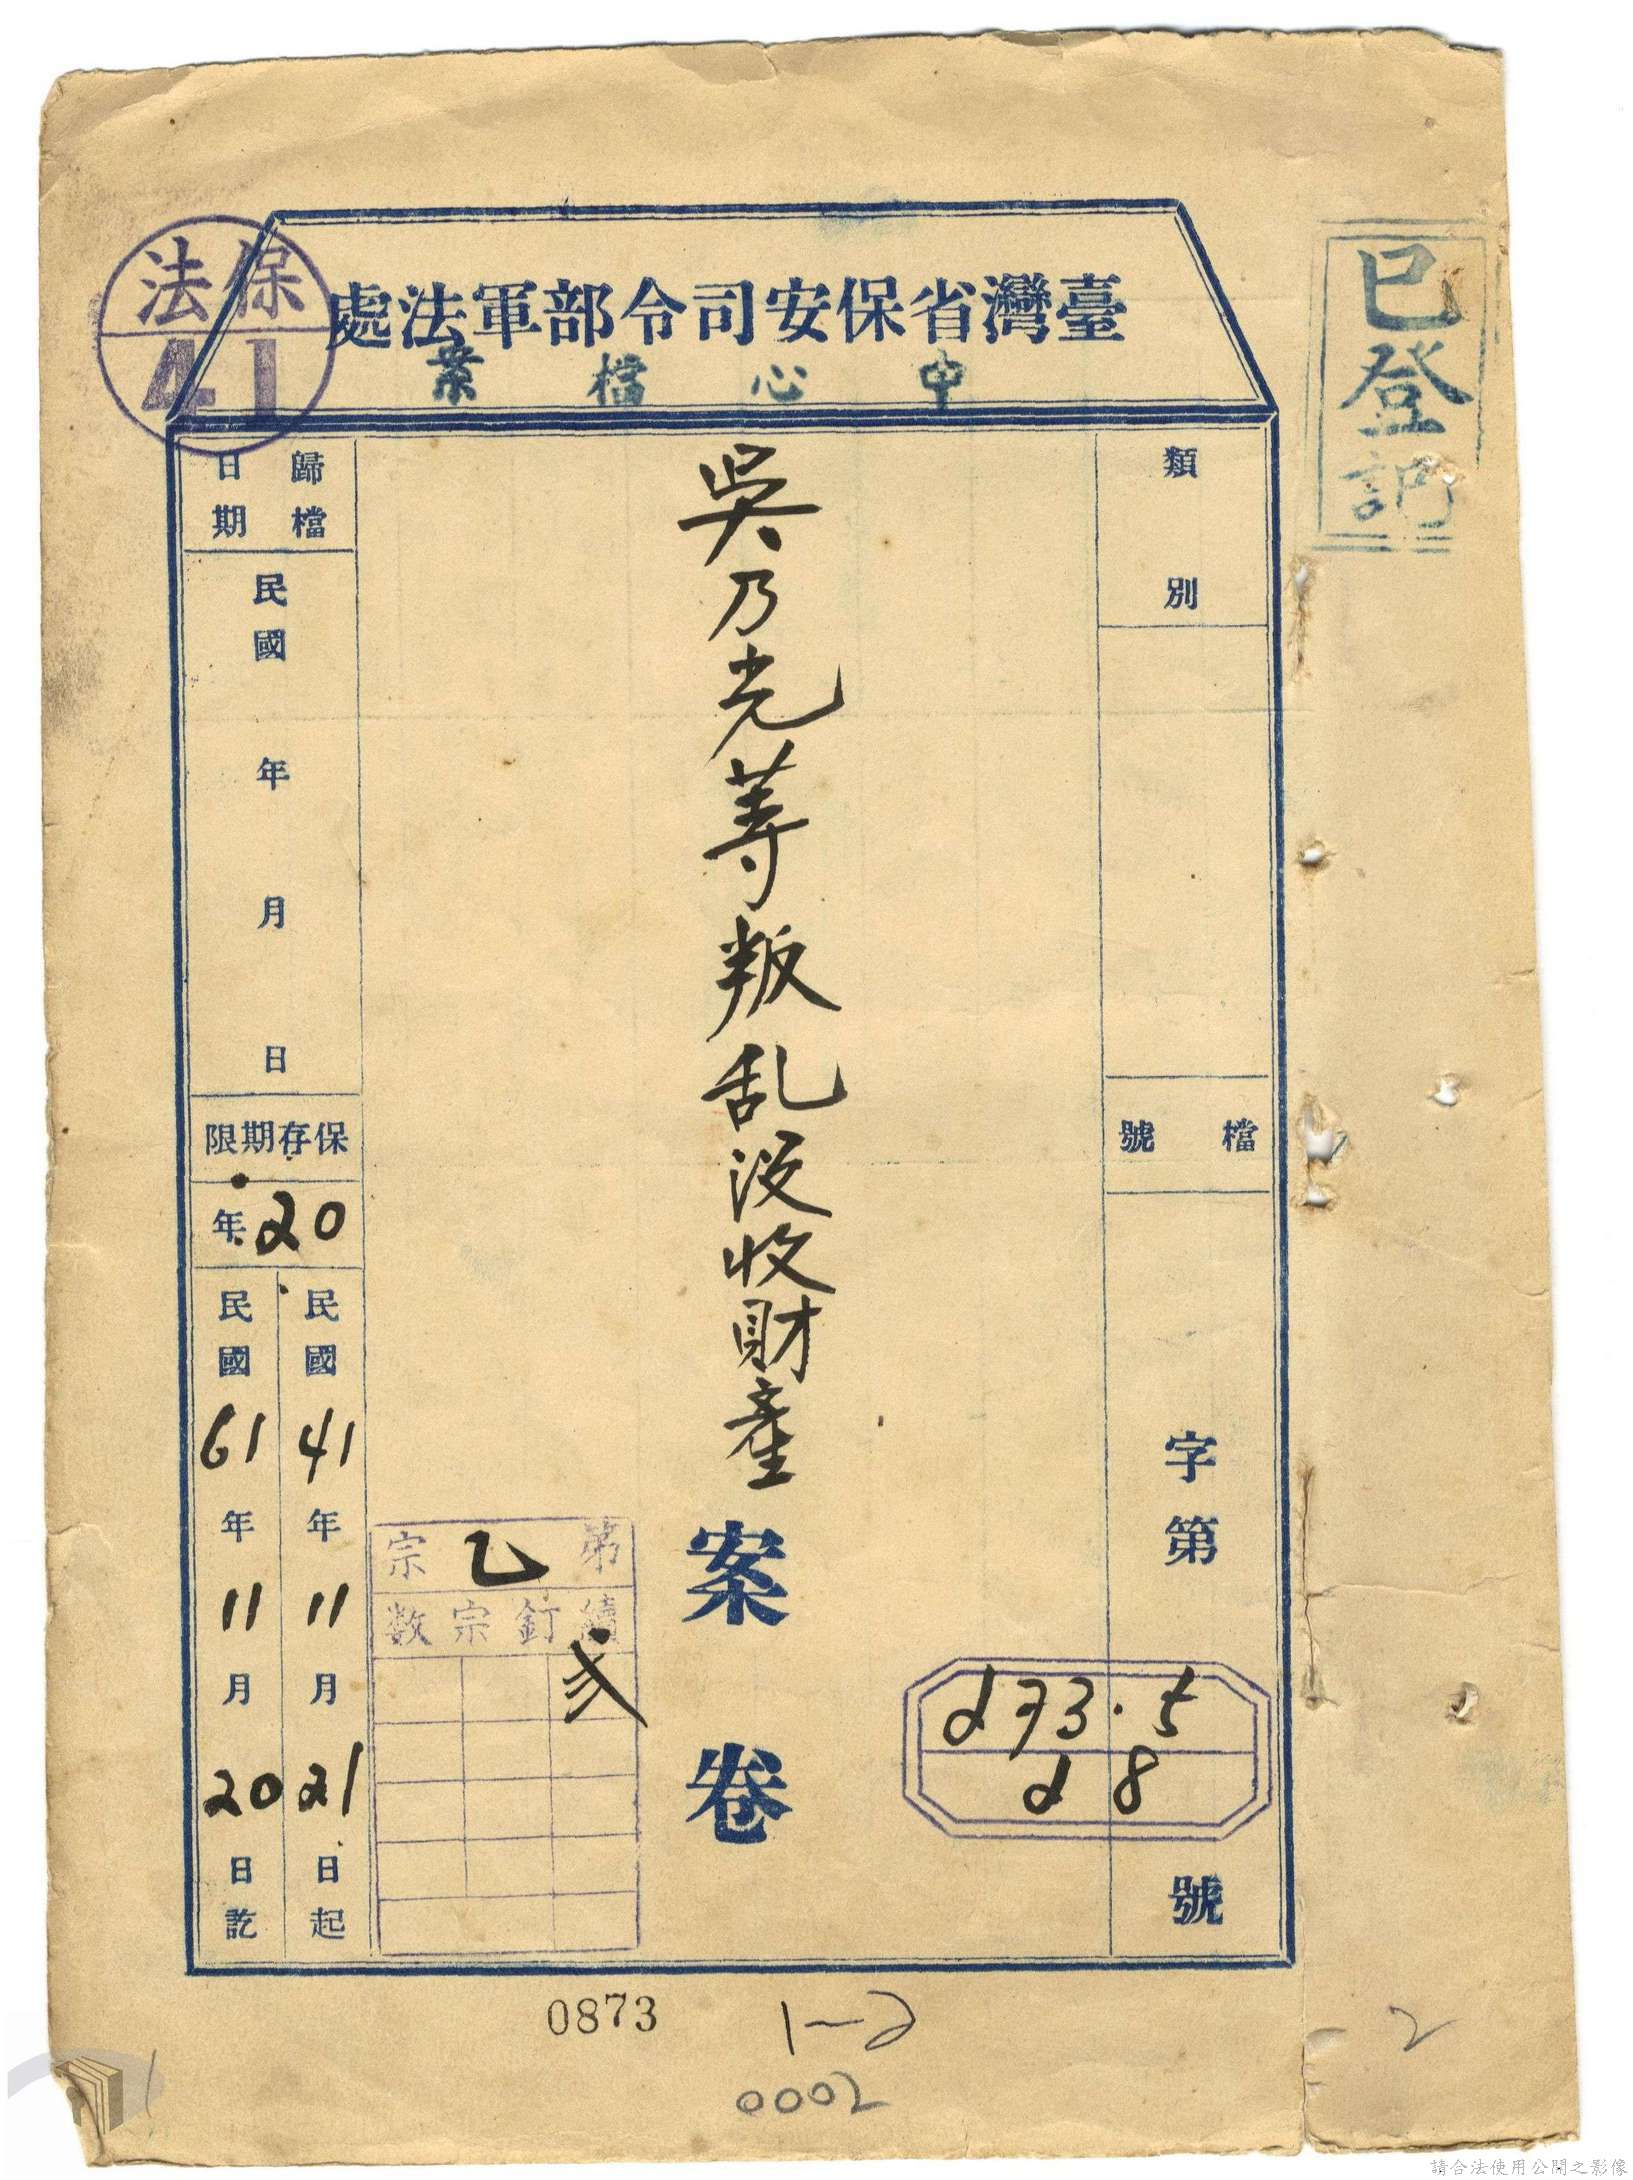 臺灣省保安司令部軍法處
中心檔案
保法
41
已登記
類別
檔號
字第
273.5
28
號
吳乃光等叛乱没收財產
案卷
第乙宗
續釘宗數
弍
歸檔日期
民國 年 月 日
保存期限
20年
民國41年11月21日起
民國61年11月20日訖
0873
1-2
0002
2
請合法使用公開之影像